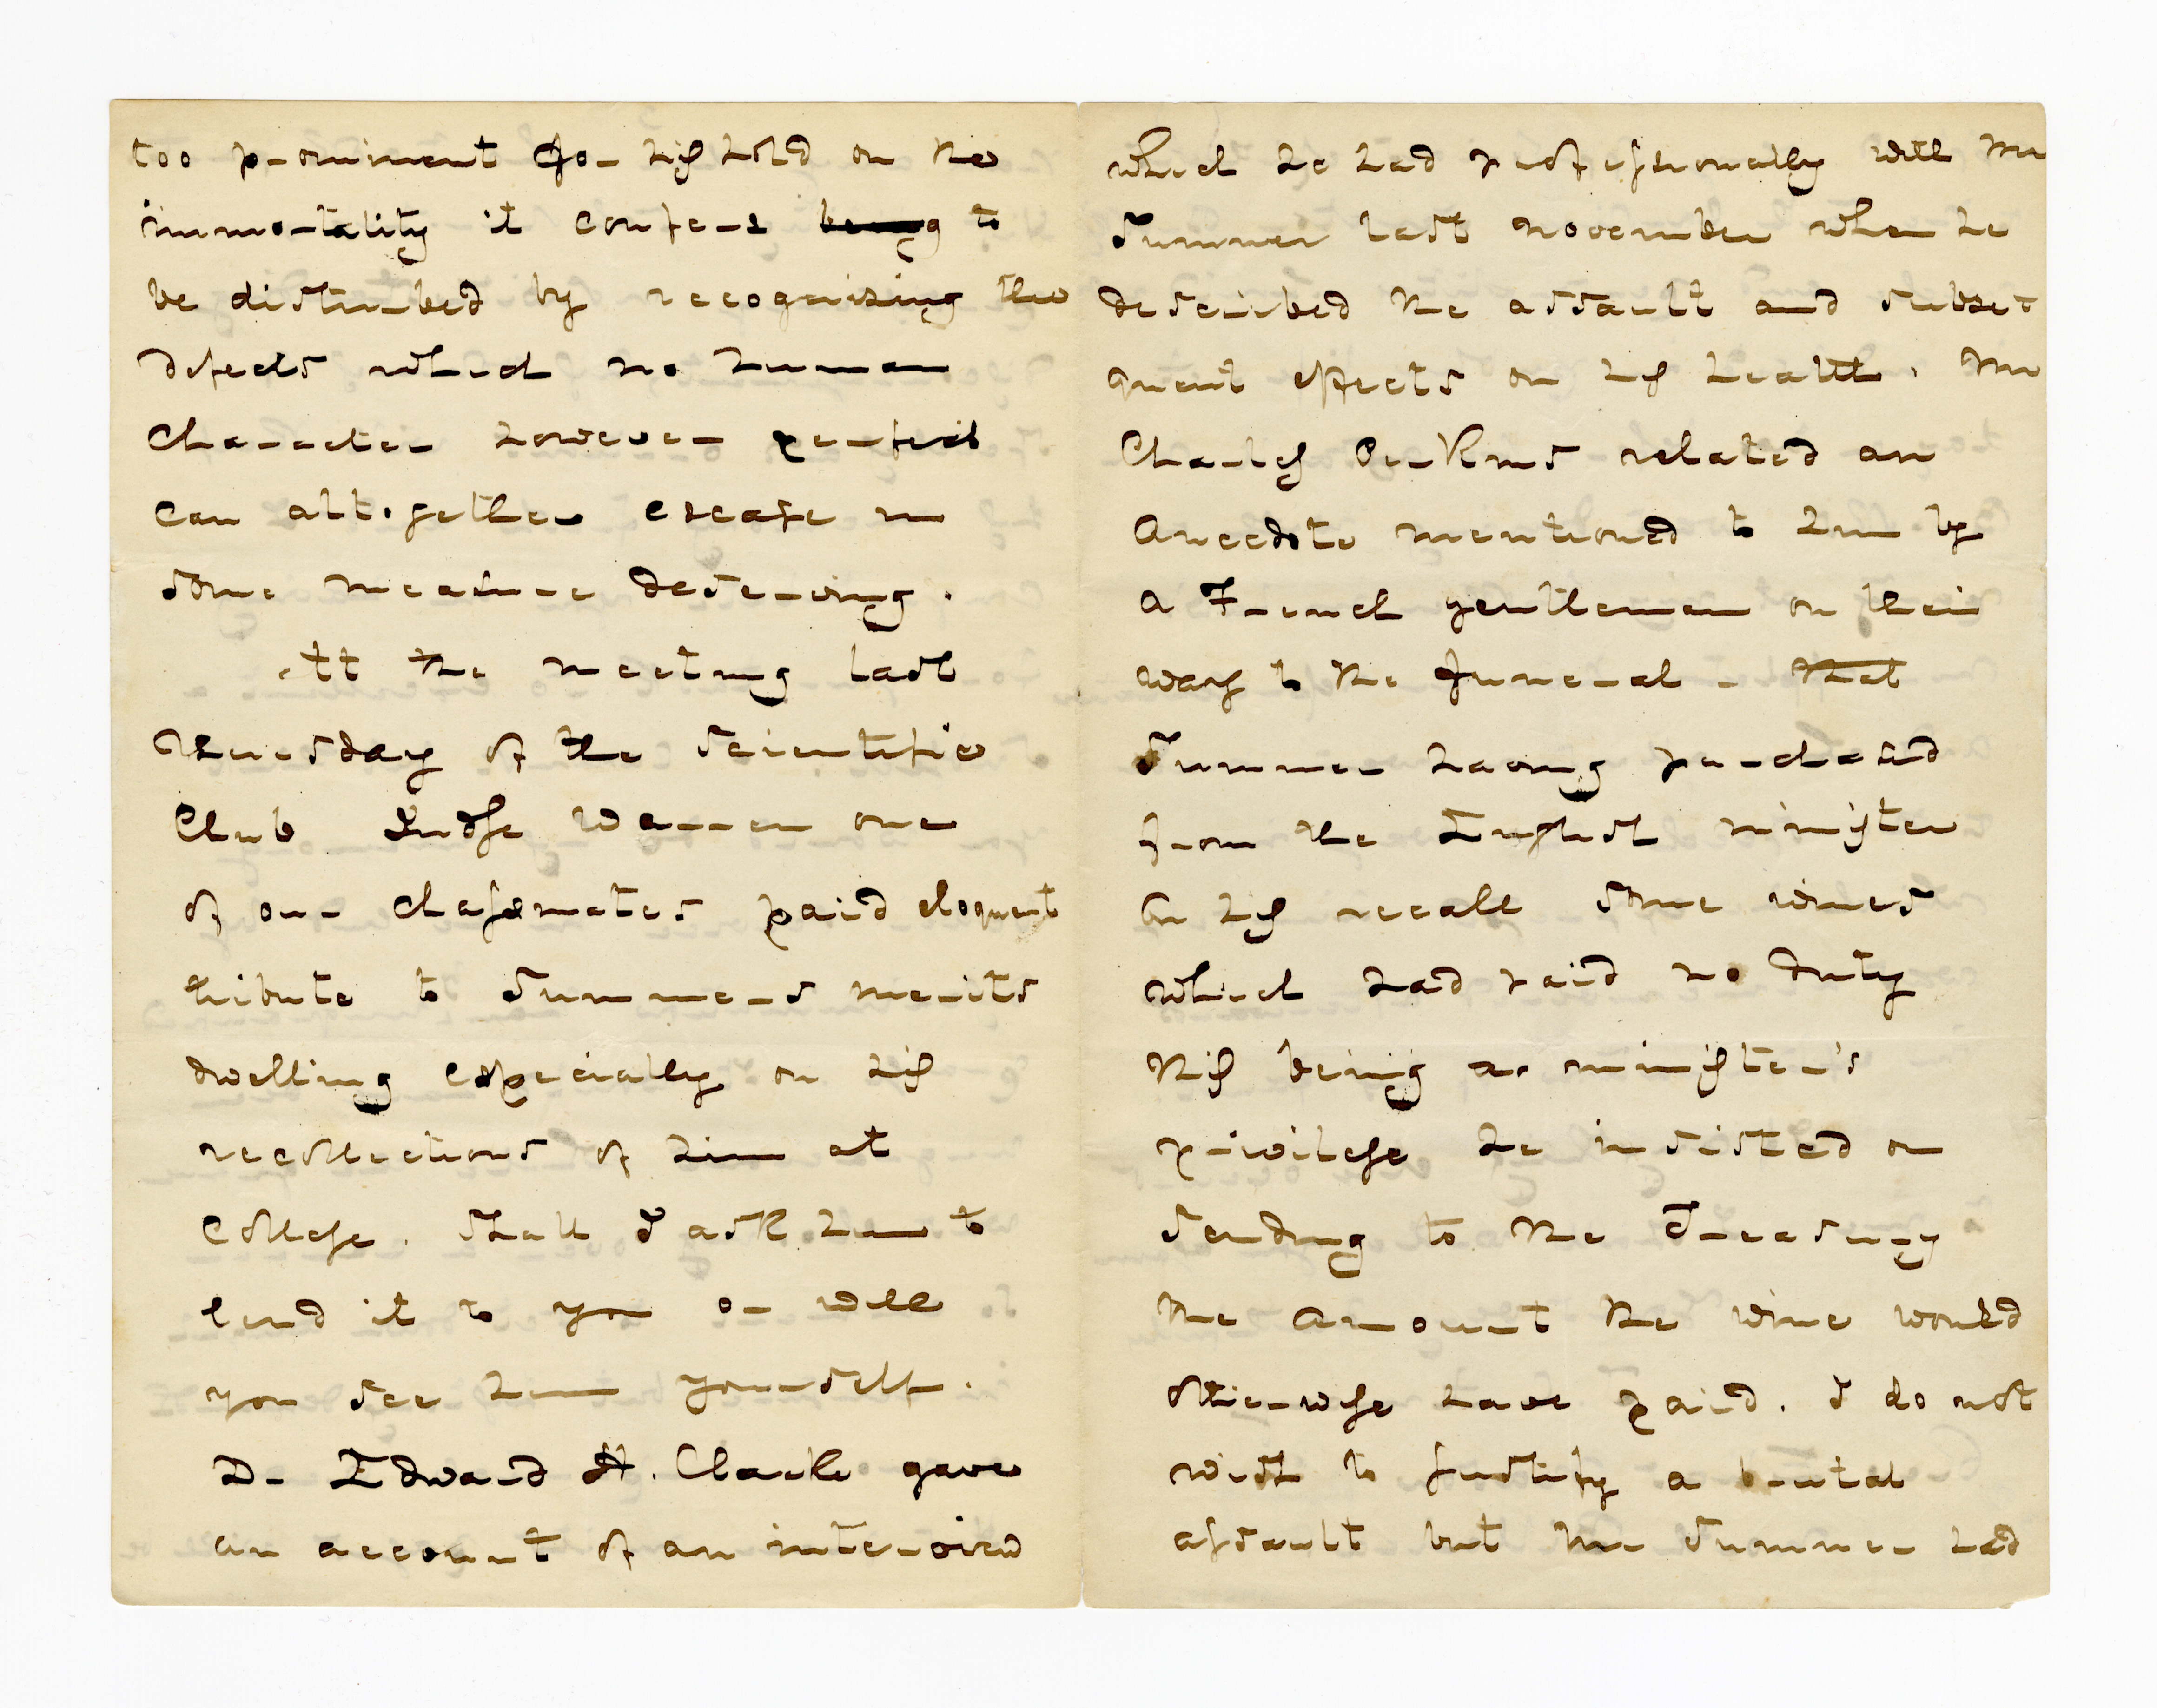 too prominent for his hold on the
immortality it confers being to
be disturbed by recognising the
defects which no human
character however perfect
can alt.gether escape in
some measure deserving.
At the meeting last
Thursday of the Scientific
Club Judge Warren one
of our classmates paid eloquent
tribute to Sumners merits
dwelling especially on his
recollections of him at
College. Shall I ask him to
lend it to you or will
you see him yourself.
Dr Edward H. Clarke gave
an account of an interview
which he had professionally with Mr
Sumner last November when he
described the assault and subse
quent effects on his health. Mr
Charles Perkins related an
anecdote mentioned to him by
a French gentleman on their
way to the funeral - that
Sumner having purchased
from the English minister
on his recall some wines
which had paid no duty
this being a minister's
privilege he insisted on
sending to the Treasury
the amount the wine would
otherwise have paid. I do not
wish to justify a brutal
assault but Mr Sumner had